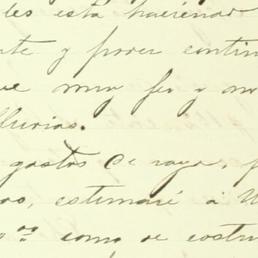 les está haciendo
te y poder contin
ue muy feo y no
lluvias.
gastos de raya, p
os, estimaré á U
como de costu